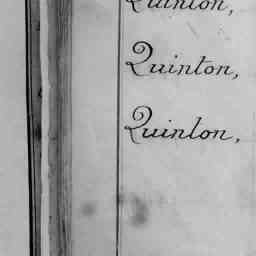 Quinton,
Quinton,
Quinlon,